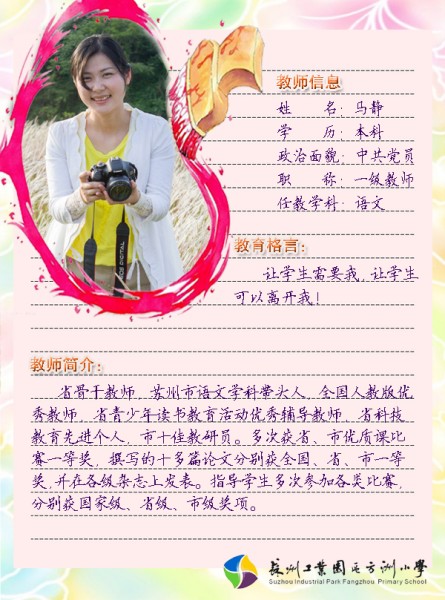 教师信息
姓 名：马静
学 历：本科
政治面貌：中共党员
职 称：一级教师
任教学科：语文
教育格言：
让学生需要我，让学生
可以离开我！
教师简介：
省骨干教师，苏州市语文学科带头人，全国人教版优
秀教师，省青少年读书教育活动优秀辅导教师，省科技
教育先进个人，市十佳教研员。多次获省、市优质课比
赛一等奖，撰写的十多篇论文分别获全国、省、市一等
奖，并在各级杂志上发表。指导学生多次参加各类比赛，
分别获国家级、省级、市级奖项。
DIGITAL
苏州工业园区方洲小学
Suzhou Industrial Park Fangzhou Primary School